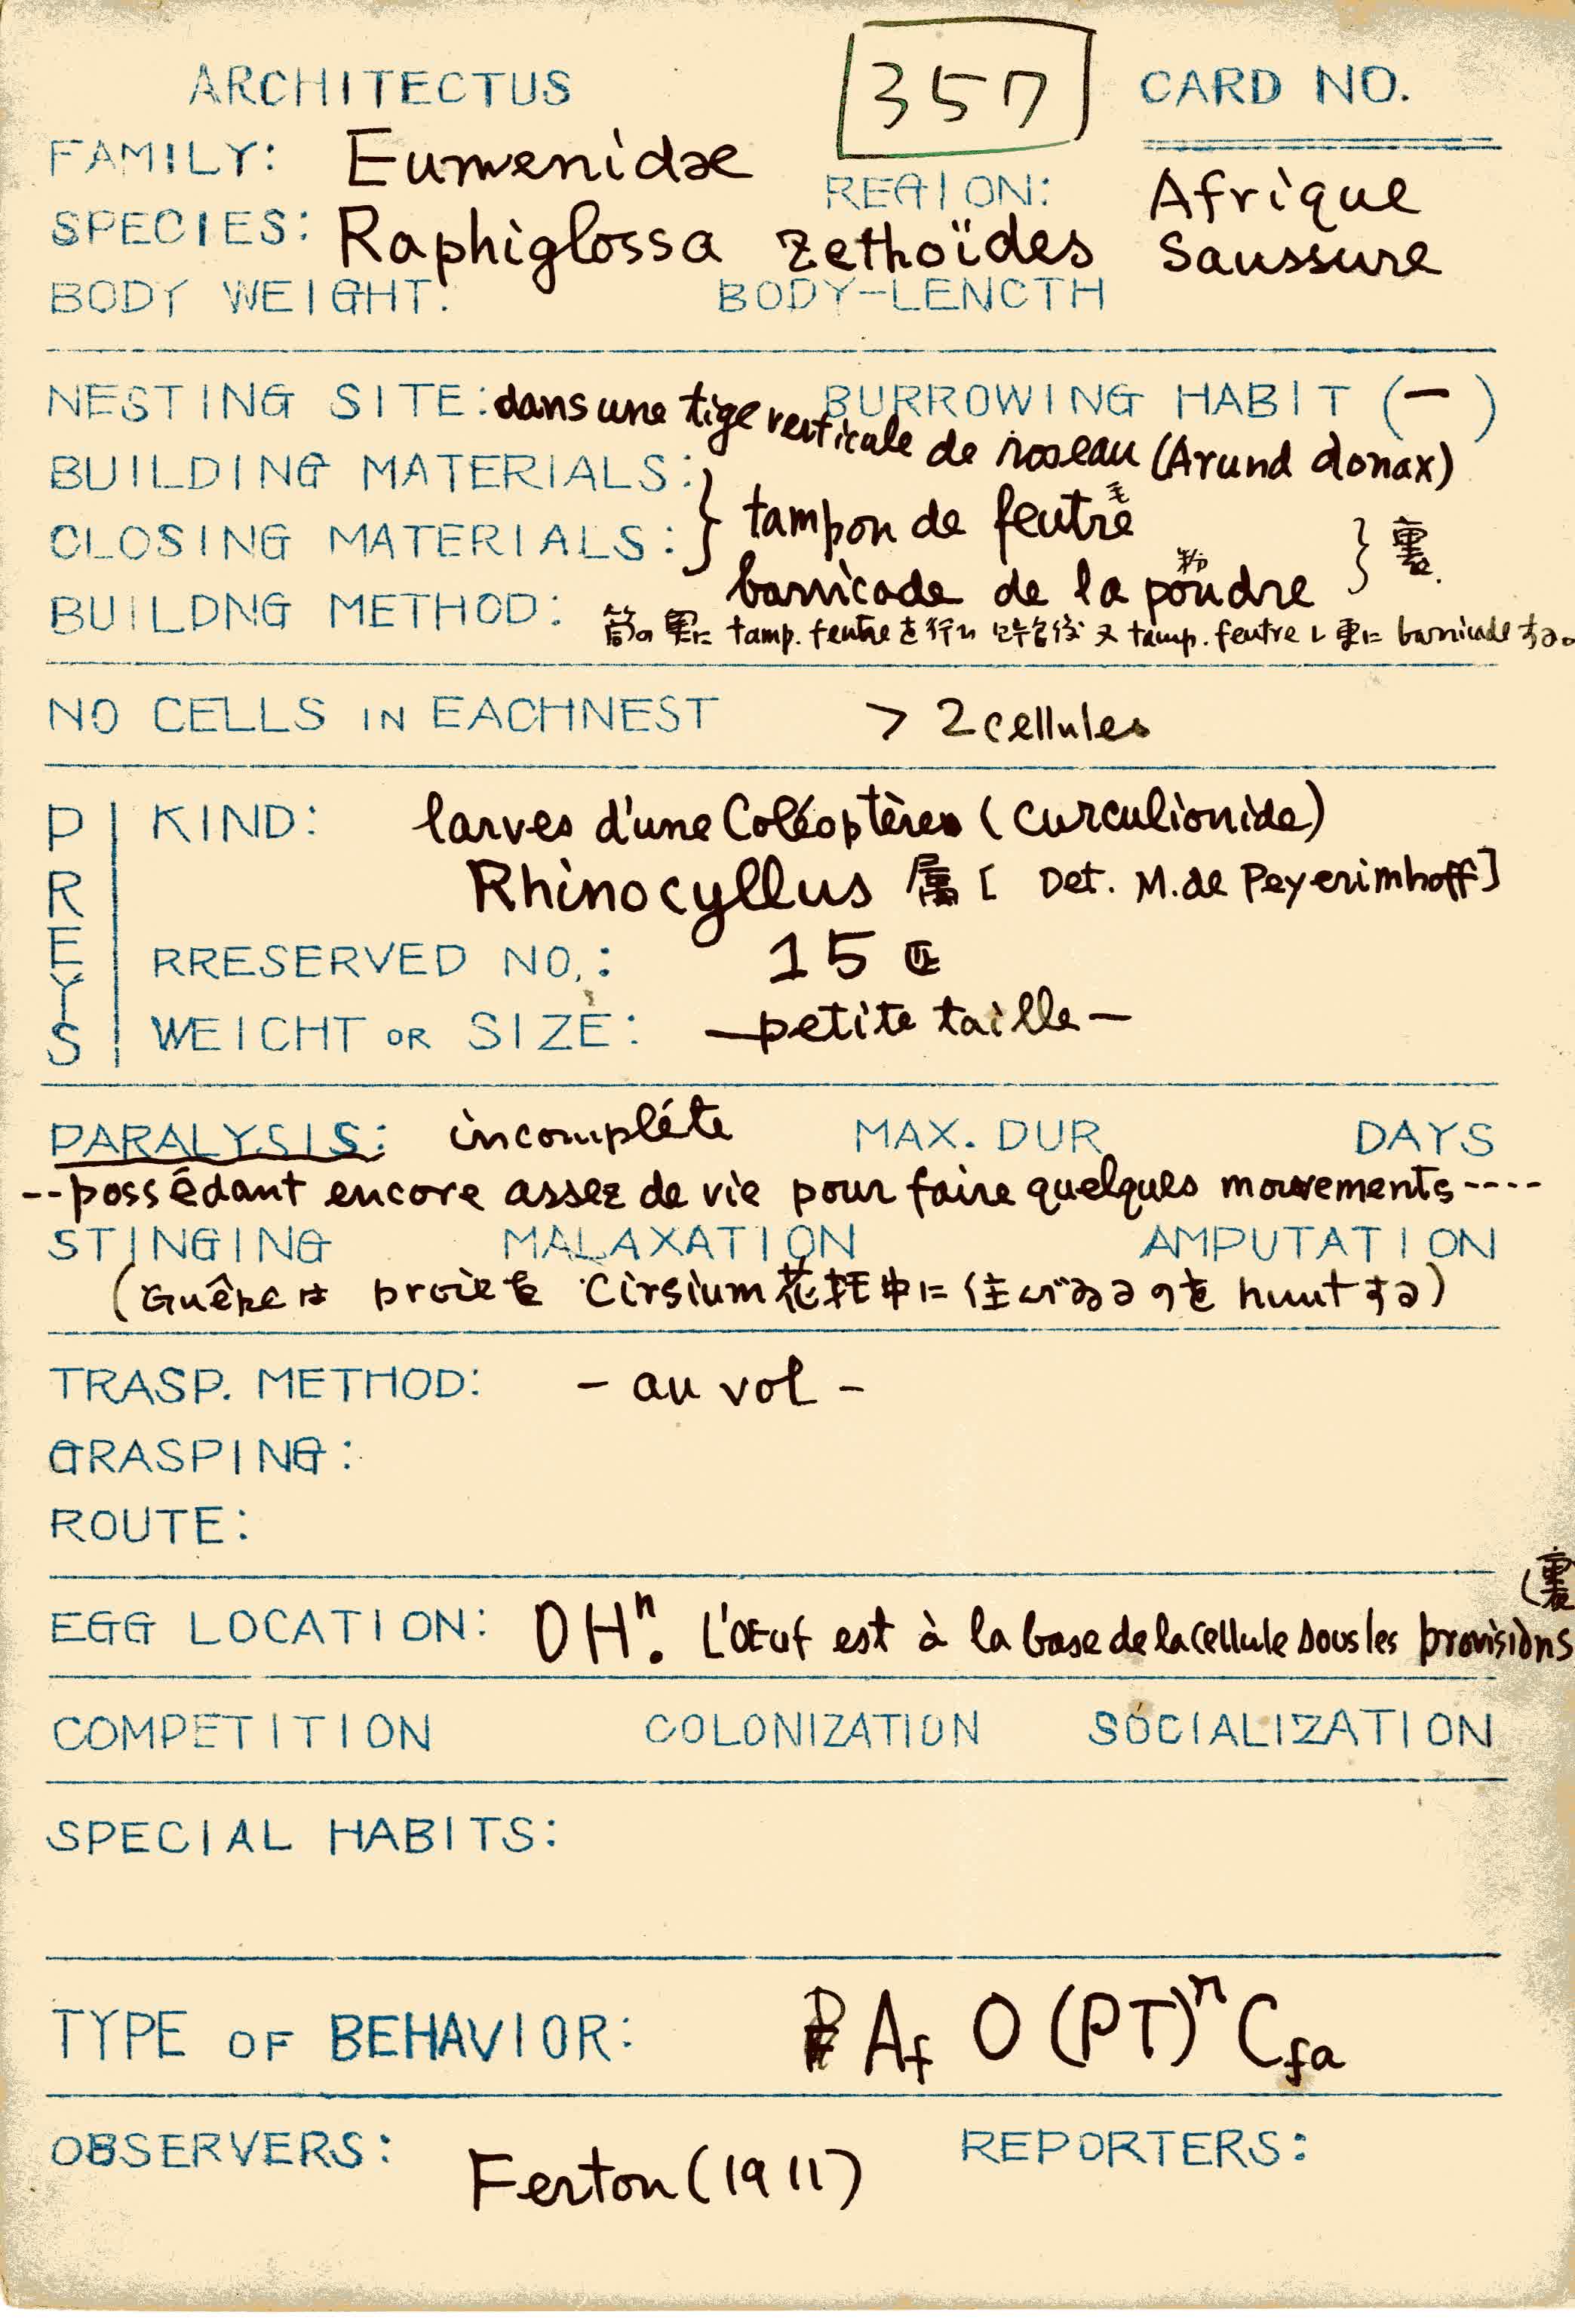 ARCHITECTUS 357 CARD NO.
FAMILY: Eumenidae REGION: Afrique
SPECIES: Raphiglossa zethoïdes Saussure
BODY WEIGHT: BODY-LENCTH
NESTING SITE: dans une tige verticale de roseau (Arund donax) BURROWING HABIT (-)
BUILDING MATERIALS: } tampon de feutre 毛
CLOSING MATERIALS: barricade de la poudre 粉 } 裏
BUILDNG METHOD: 筒の奥に tamp. feutre を行い 貯食後 又 tamp. feutre し 更に barricade する。
NO CELLS IN EACHNEST > 2 cellules
PREYS
KIND: larves d'une Coléoptères (Curculionide)
Rhinocyllus 属 [Det. M. de Peyerimhoff]
RRESERVED NO.: 15
WEICHT OR SIZE: —petite taille—
PARALYSIS: incompléte MAX. DUR DAYS
--possédant encore assez de vie pour faire quelques mouvements----
STINGING MALAXATION AMPUTATION
(Guêpe は proie を Cirsium 花托中に住んでゐるのを hunt する)
TRASP. METHOD: - au vol -
GRASPING:
ROUTE:
(裏
EGG LOCATION: OHⁿ. L'oeuf est à la base de la cellule sous les provisions
COMPETITION COLONIZATION SOCIALIZATION
SPECIAL HABITS:
TYPE OF BEHAVIOR: P Af O (PT)ⁿ Cfa
OBSERVERS: Ferton (1911) REPORTERS: